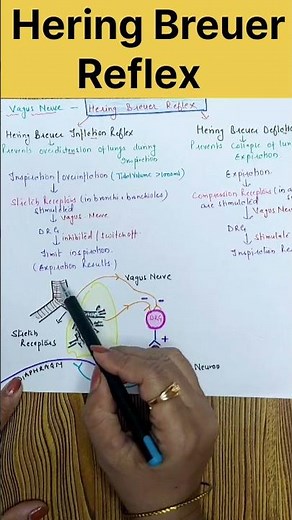 Hering Breuer
Reflex
Vagus Nerve - Hering Breuer Reflex
Hering Breuer Inflation Reflex
Prevents overdistension of lungs during
Inspiration
Inspiration/overinflation (Tidal volume
Stretch Receptors (in bronchi & bronchioles)
stimulated
Vagus Nerve
DRG
inhibited/switchoff
limit inspiration
(Expiration Results)
Vagus Nerve
DRG
Stretch
Receptors
DIAPHRAGM
Neuro
Hering Breuer Defl
Prevents Collapse of lu
Expiration
Expiration
Compression Receptors (in a
are stimulated
Vagus Nerv
DRG
Stimulate
Inspiration